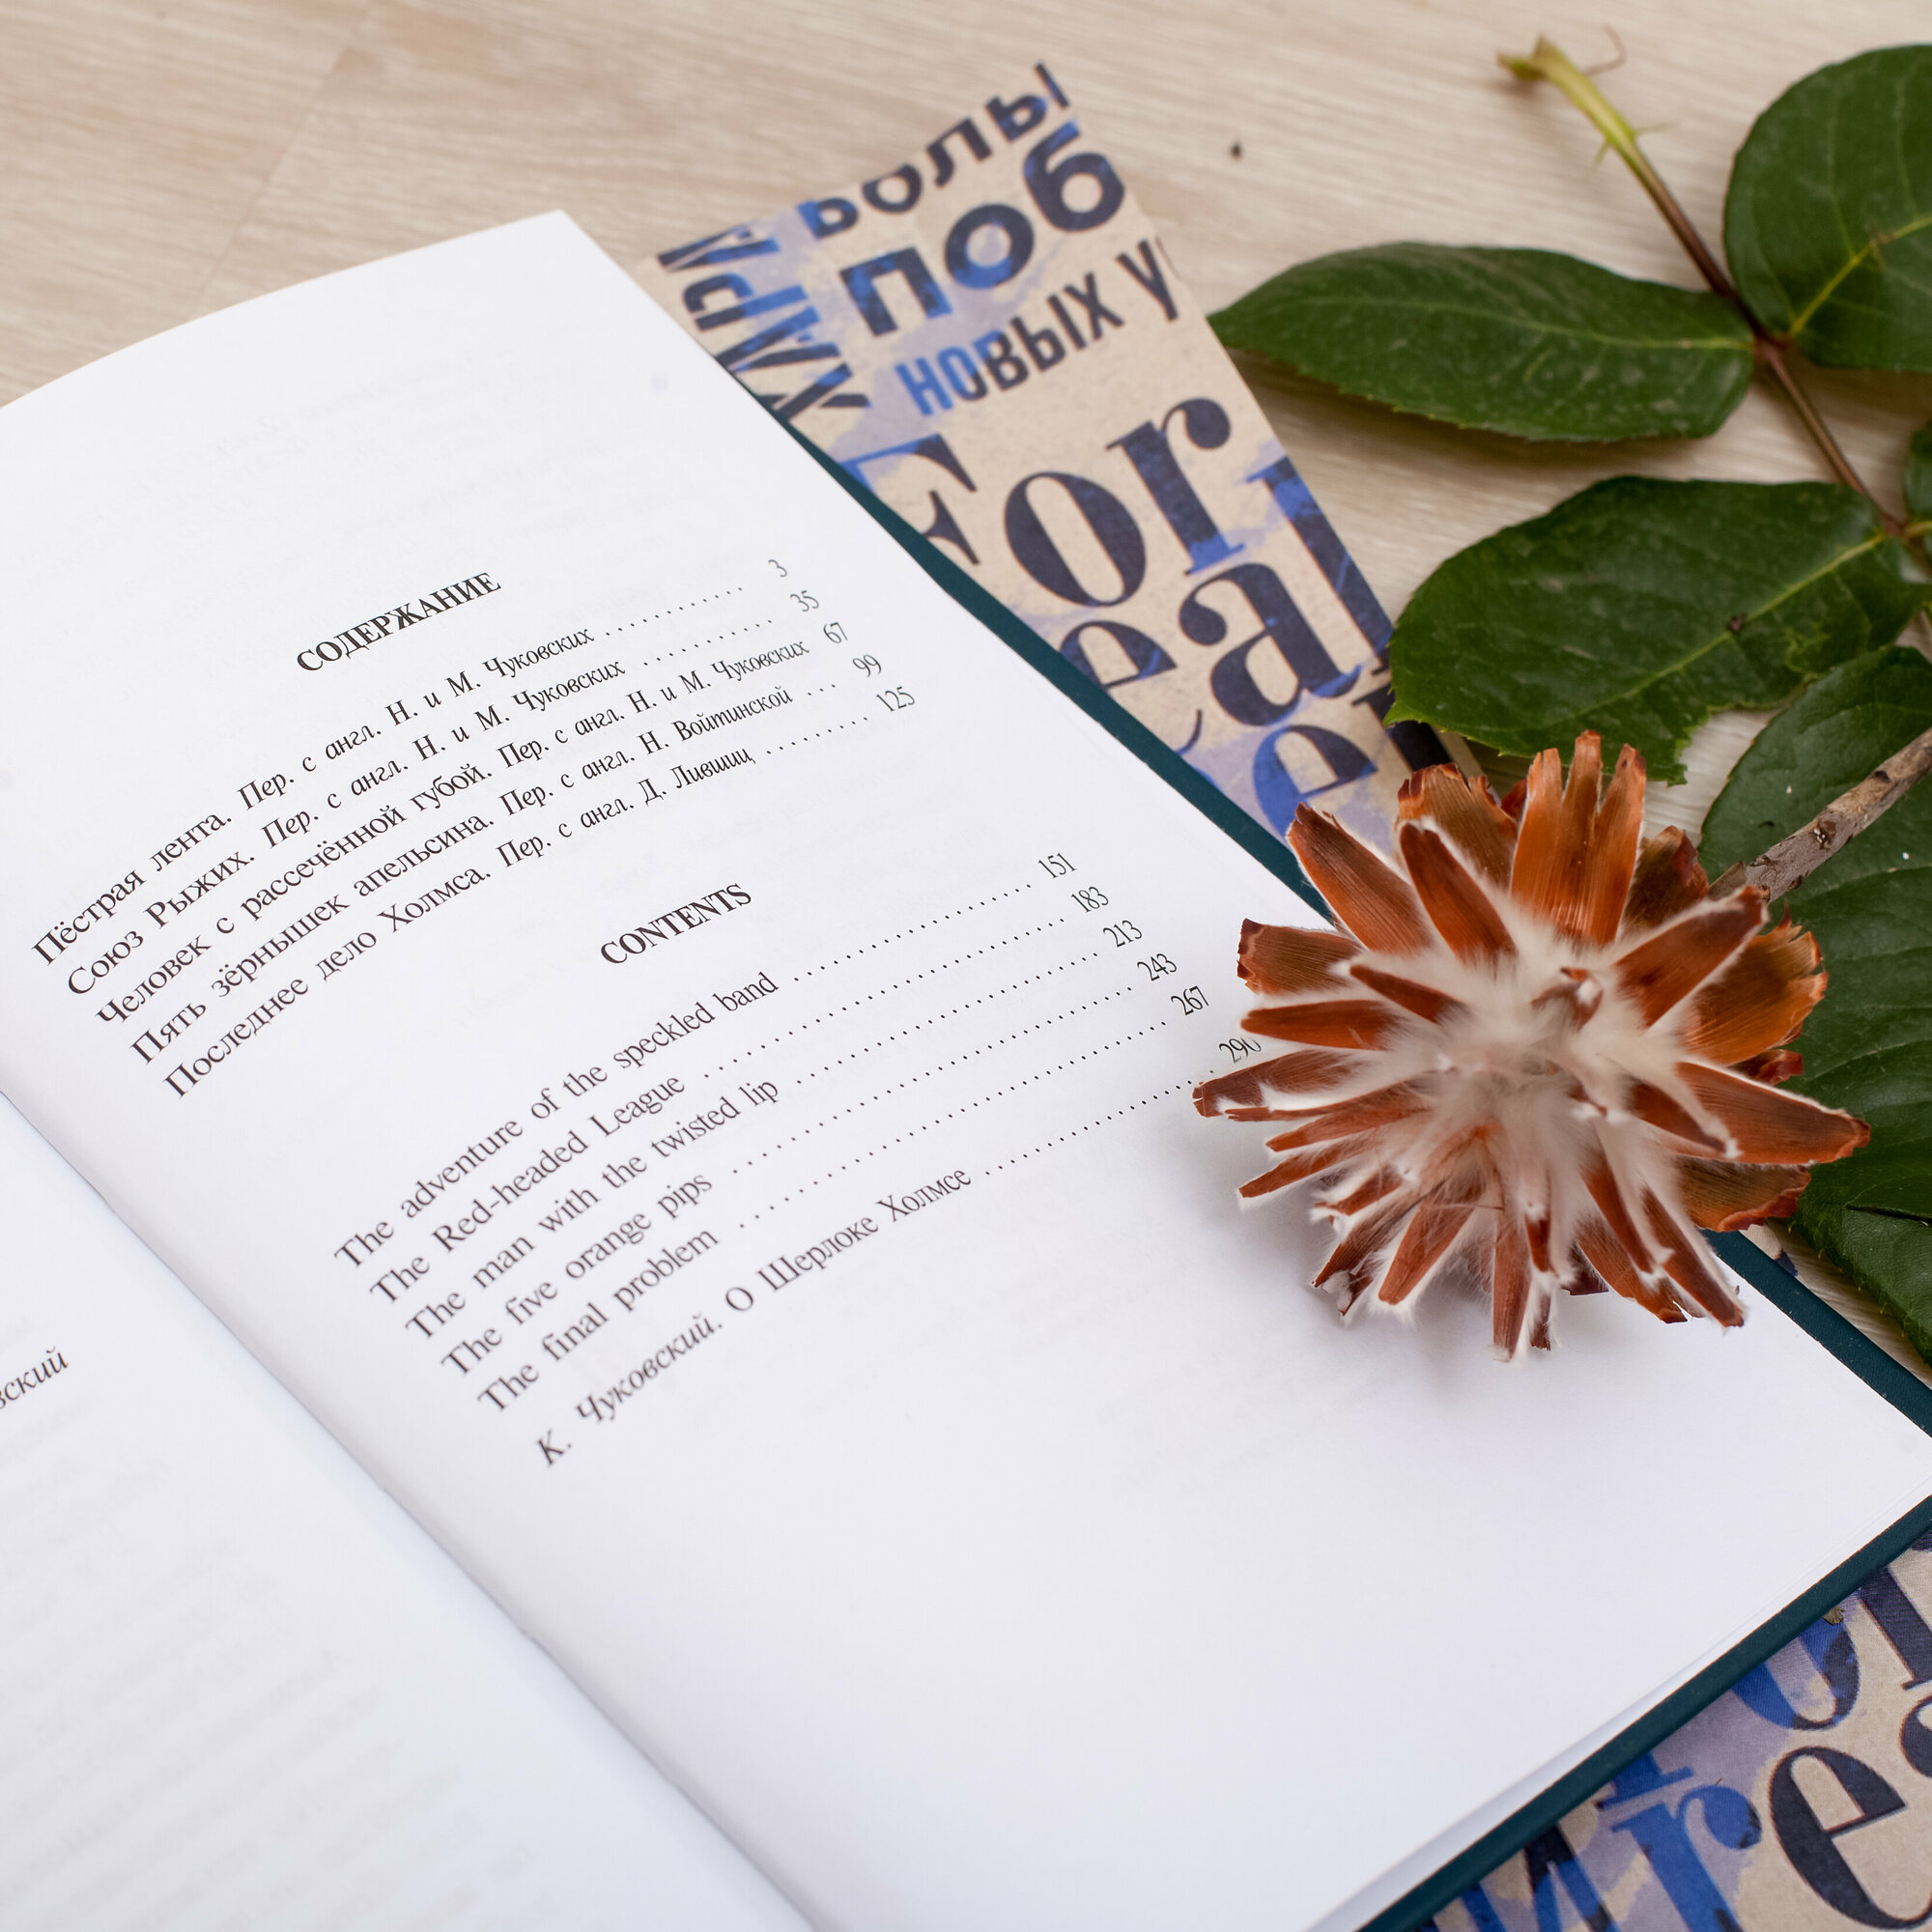 СОДЕРЖАНИЕ
Пёстрая лента. Пер. с англ. Н. и М. Чуковских ............ 3
Союз Рыжих. Пер. с англ. Н. и М. Чуковских ........... 35
Человек с рассечённой губой. Пер. с англ. Н. и М. Чуковских 67
Пять зёрнышек апельсина. Пер. с англ. Н. Войтинской ... 99
Последнее дело Холмса. Пер. с англ. Д. Лившиц ......... 125
CONTENTS
The adventure of the speckled band ..................... 151
The Red-headed League ................................ 183
The man with the twisted lip ............................. 213
The five orange pips ..................................... 243
The final problem ........................................ 267
К. Чуковский. О Шерлоке Холмсе ...................... 290
поб
новых у
For